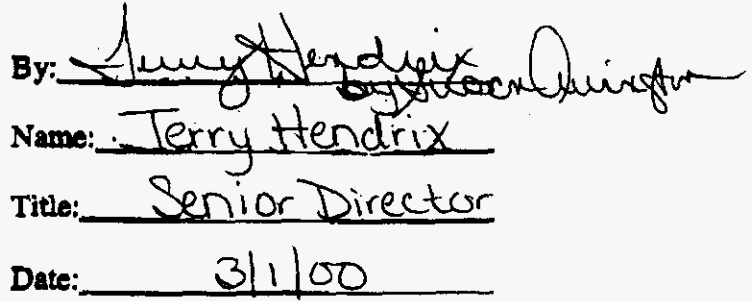 By: Terry Hendrix
by
Name: Terry Hendrix
Title: Senior Director
Date: 3/1/00